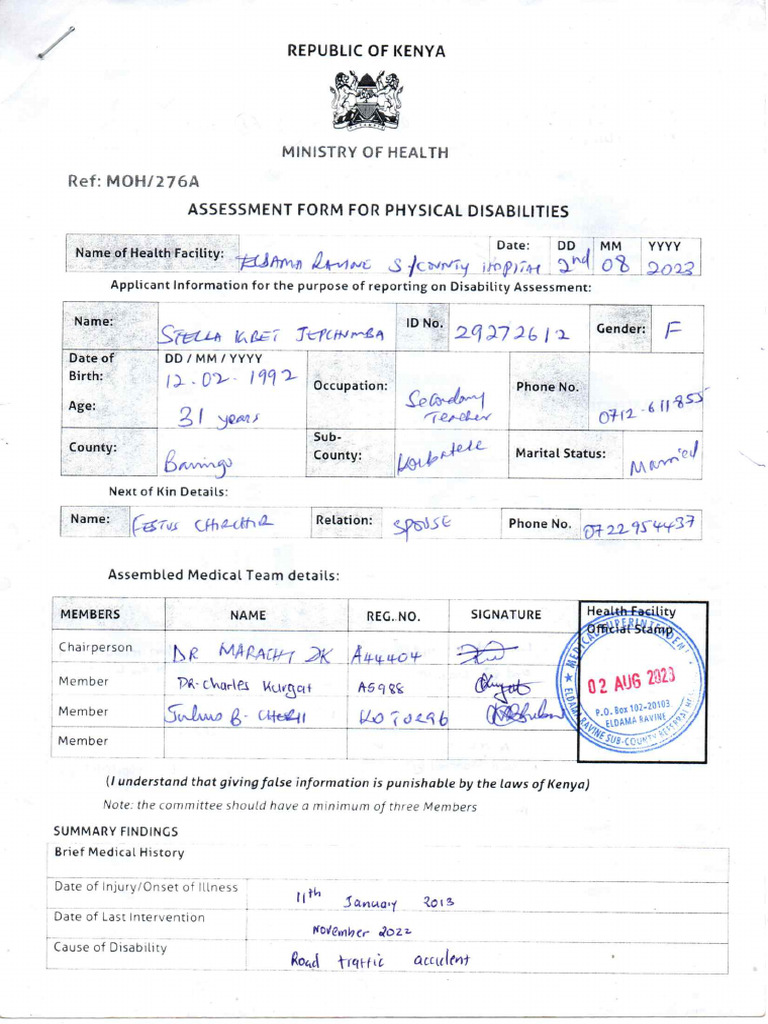 REPUBLIC OF KENYA
MINISTRY OF HEALTH
Ref: MOH/276A
ASSESSMENT FORM FOR PHYSICAL DISABILITIES
Name of Health Facility: ELDAMA RAVINE S/COUNTY HOPITAL Date: DD MM YYYY
2nd 08 2023
Applicant Information for the purpose of reporting on Disability Assessment:
Name: STELLA KIBET JEPCHUMBA ID No. 29272612 Gender: F
Date of Birth: DD / MM / YYYY
12.02.1992
Age: 31 years
Occupation: Secondary Teacher
Phone No. 0712-611855
County: Baringo
Sub-County:
Marital Status: Married
Next of Kin Details:
Name: FESTUS CHIRCHIR Relation: SPOUSE Phone No. 0722954437
Assembled Medical Team details:
MEMBERS NAME REG. NO. SIGNATURE
Health Facility
Official Stamp
Chairperson DR MARACHI DK A44404
Member DR. Charles Kurgat A5988
Member Julius B.
Member
MEDICAL SUPERINTENDENT
02 AUG 2023
P.O. Box 102-20103
ELDAMA RAVINE
ELDAMA RAVINE SUB-COUNTY REFERRAL
(I understand that giving false information is punishable by the laws of Kenya)
Note: the committee should have a minimum of three Members
SUMMARY FINDINGS
Brief Medical History
Date of Injury/Onset of Illness 11th January 2013
Date of Last Intervention November 2022
Cause of Disability Road traffic accident